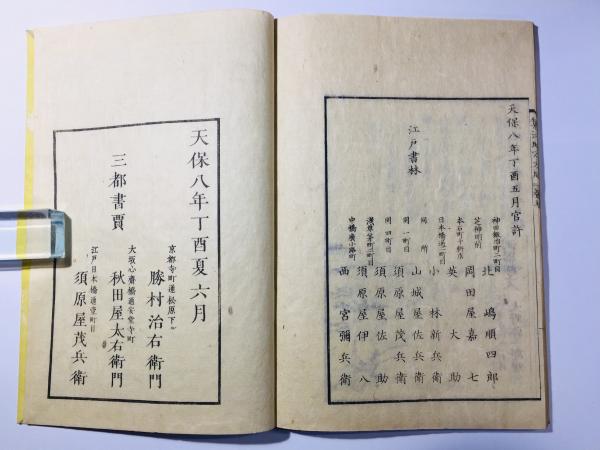 天保八年丁酉五月官許
江戸書林
神田鍛冶町二町目
北嶋順四郎
芝神明前
岡田屋嘉七
本石町十軒店
英大助
日本橋通二町目
小林新兵衛
同所
山城屋佐兵衛
同一町目
須原屋茂兵衛
同四町目
須原屋佐助
浅草茅町二町目
須原屋伊八
中橋廣小路町
西宮彌兵衛
天保八年丁酉夏六月
三都書賈
京都寺町通松原下
勝村治右衛門
大坂心齋橋通安堂寺町
秋田屋太右衛門
江戸日本橋通壹町目
須原屋茂兵衛